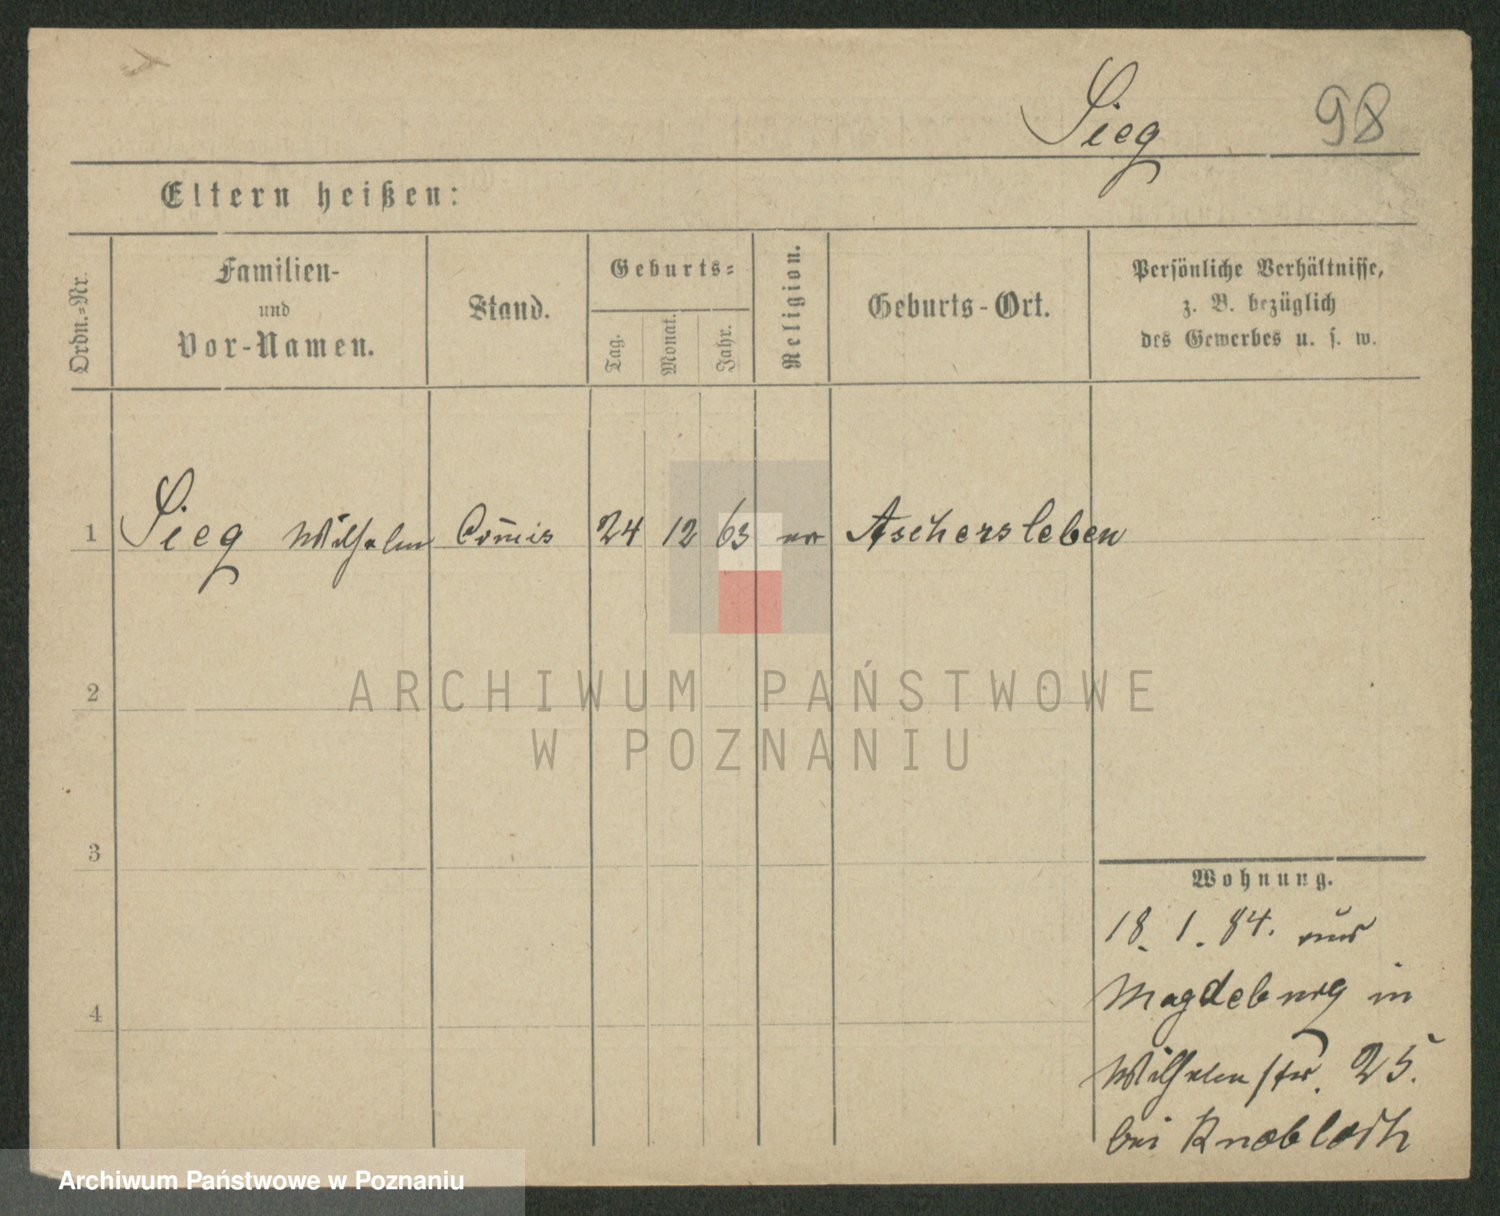 Sieg 98
Eltern heißen:
Ordn.-Nr.
Familien-
und
Vor-Namen.
Stand.
Geburts-
Tag.
Monat.
Jahr.
Religion.
Geburts-Ort.
Persönliche Verhältnisse,
z. B. bezüglich
des Gewerbes u. s. w.
1 Sieg Wilhelm Com̄is 24 12 63 ev Aschersleben
2
ARCHIWUM PAŃSTWOWE
W POZNANIU
3
Wohnung.
18. 1. 84. aus
4
Magdeburg in
Wilhelmstr. 25.
bei Knobloch
Archiwum Państwowe w Poznaniu